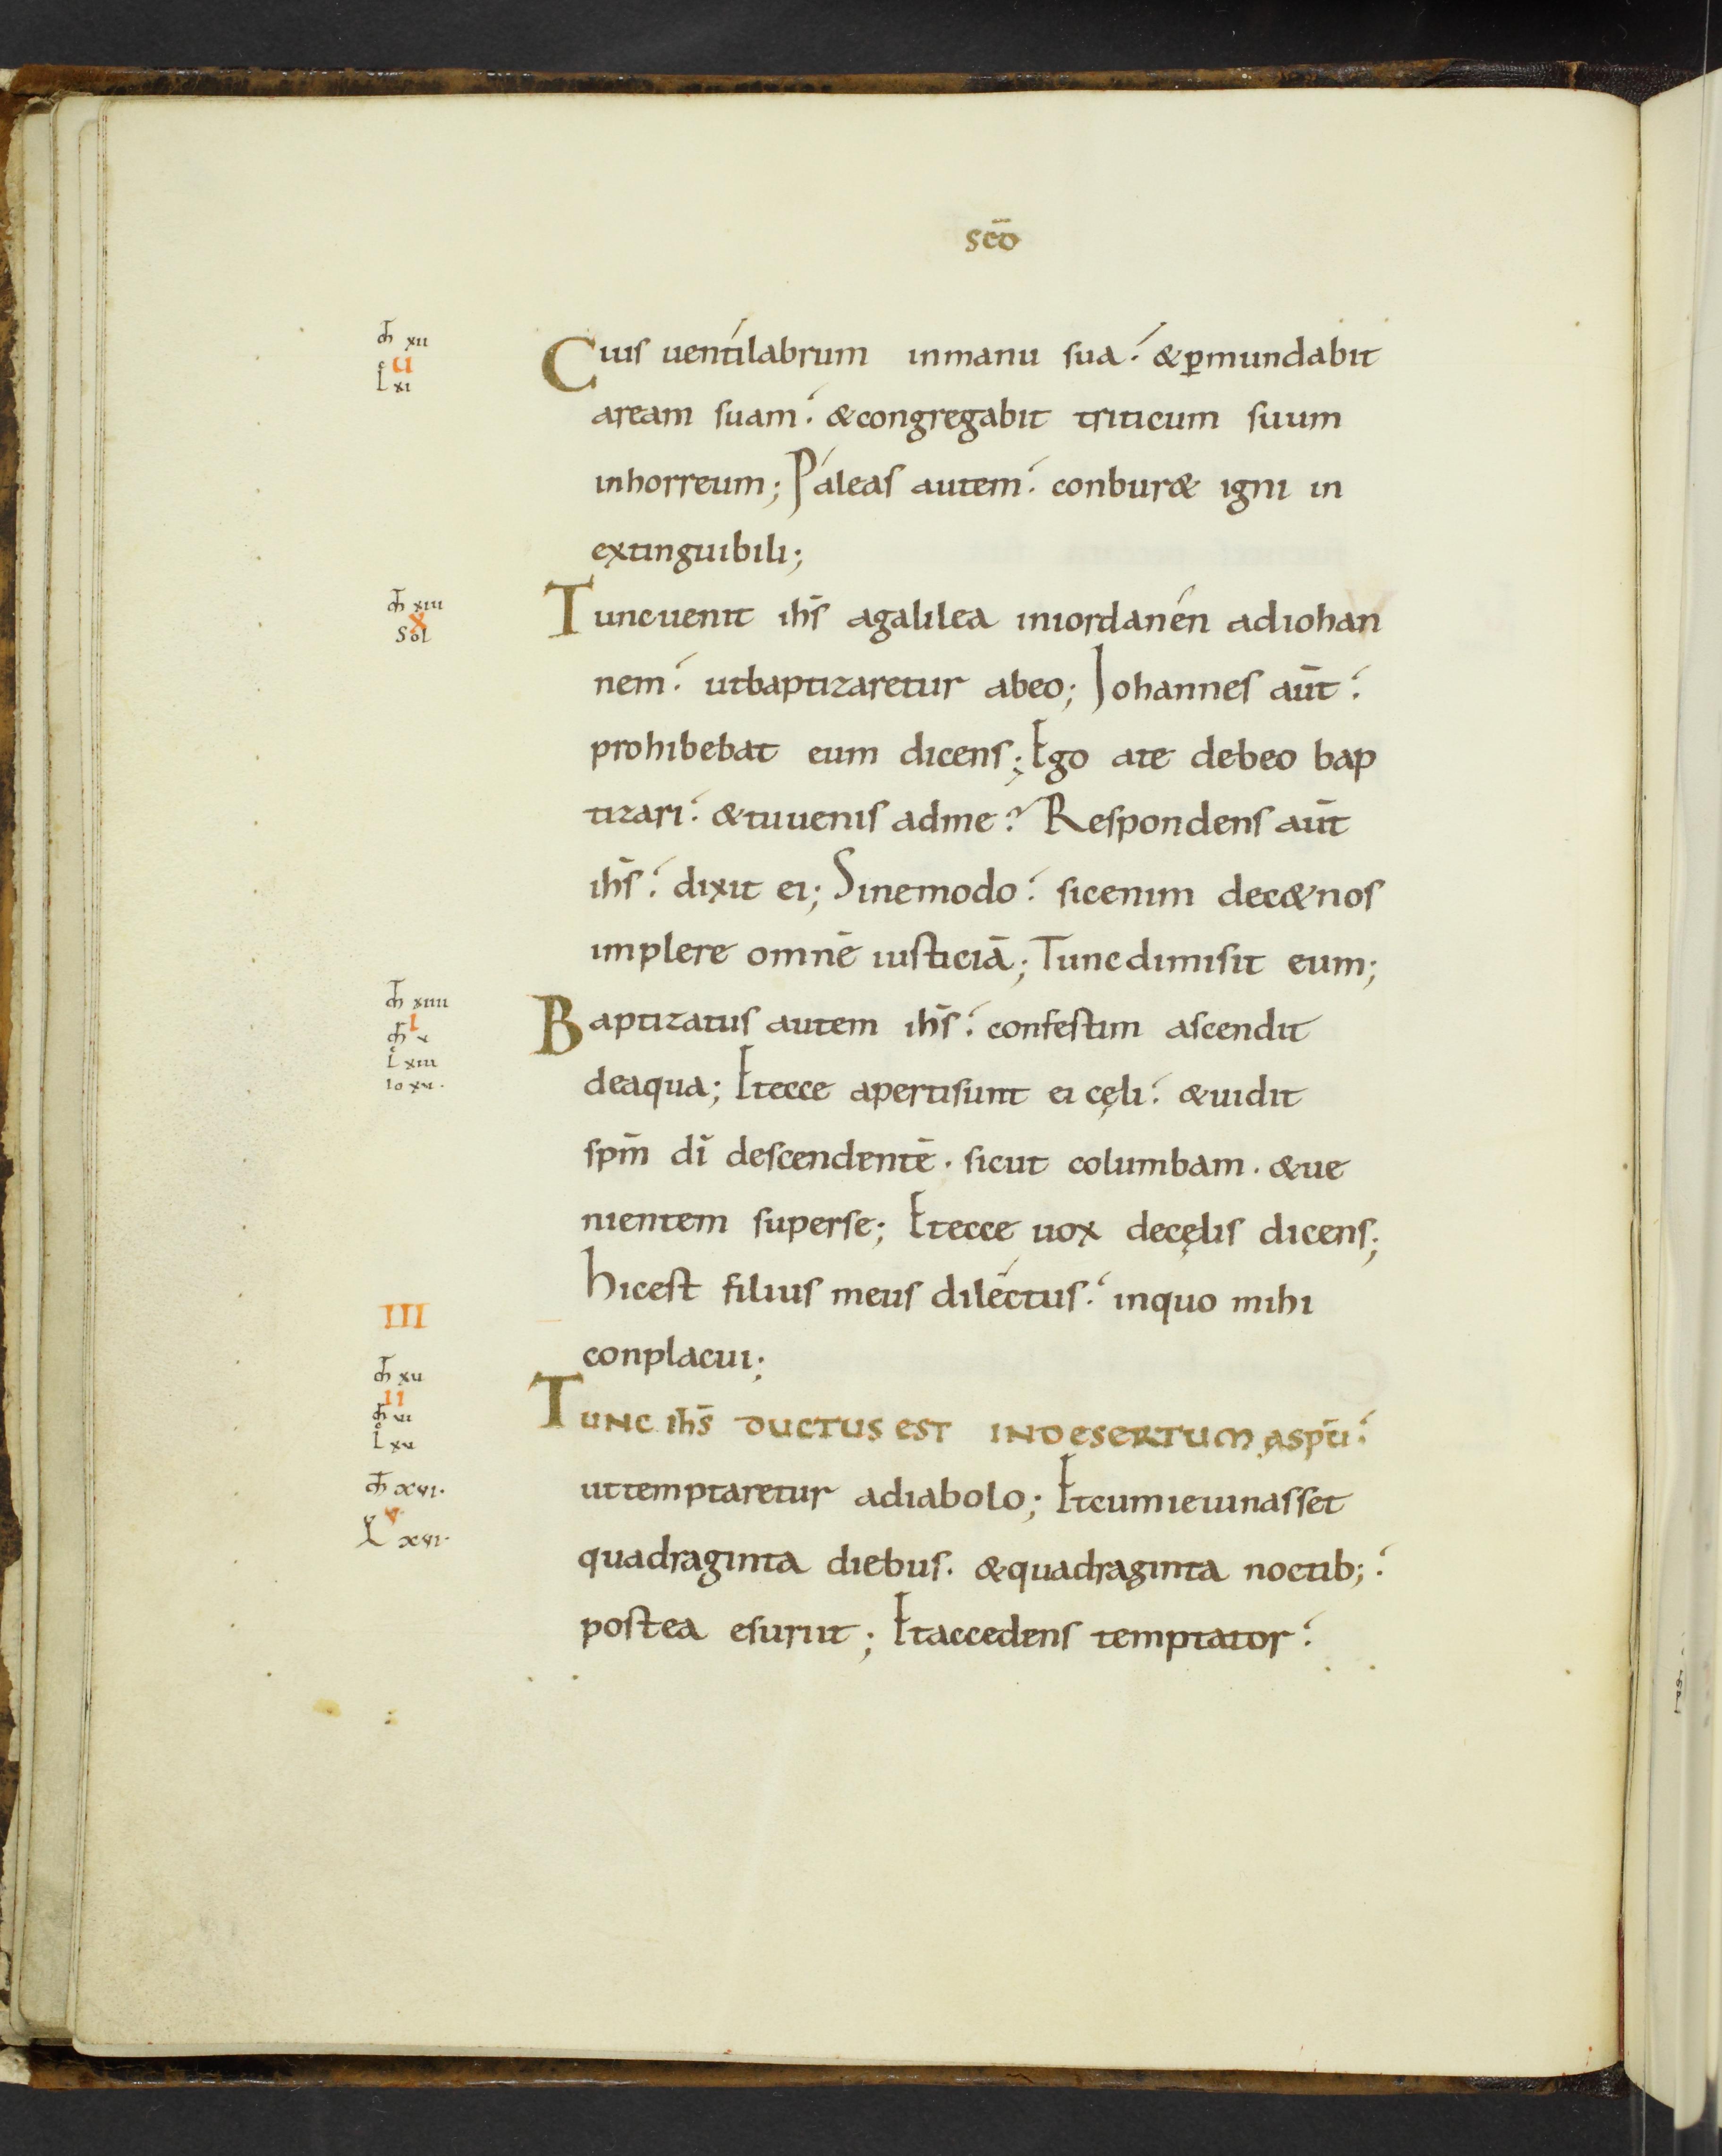 scō
m̄ xii
u
l xi
Cuius uentilabrum inmanu sua. &p̄mundabit
aream suam. &congregabit triticum suum
inhorreum; Páleas autem. conbur& igni in
extinguibili;
m̄ xiii
X
Sol
Tuncuenit ih̄s agalilea iniordanén adiohan
nem. utbaptizaretur abeo; Iohannes aūt.
prohibebat eum dicens; Ego ate debeo bap
tizari. &tuuenis adme? Respondens aūt
ih̄s. dixit ei; Sinemodo. sicenim dec&nos
implere omnē iusticiā; Tuncdimisit eum;
m̄ xiiii
I
m̄ v
l xiii
io xv.
Baptizatus autem ih̄s. confestim ascendit
deaqua; Etecce apertisunt ei cęli. &uidit
sp̄m dī descendentē. sicut columbam. &ue
nientem superse; Etecce uox decęlis dicens;
hicest filius meus diléctus. inquo mihi
conplacui;
III
m̄ xu
II
m̄ vi
l xv
Tunc ih̄s ductus est indesertum asp̄u.
m̄ xvi.
v
l xvi.
uttemptaretur adiabolo; Etcumieiunasset
quadraginta diebus. &quadraginta noctib;.
postea esuriit; Etaccedens temptator.